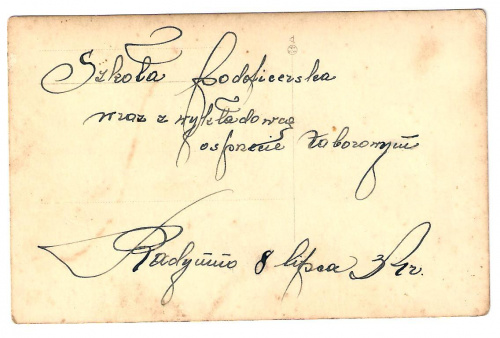 Szkoła Podoficerska
wraz z wykładowcą
o sprzęcie taborowym
Radymno 8 lipca 34r.